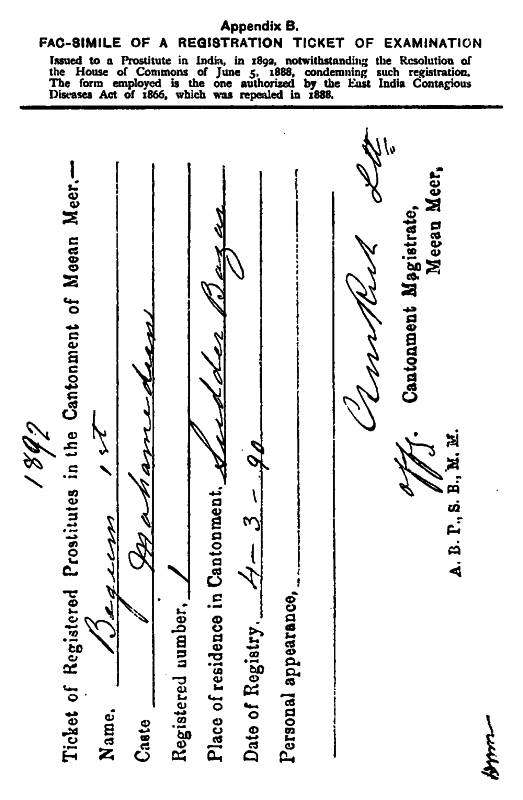 Appendix B.
FAC-SIMILE OF A REGISTRATION TICKET OF EXAMINATION
Issued to a Prostitute in India, in 1892, notwithstanding the Resolution of
the House of Commons of June 5, 1888, condemning such registration.
The form employed is the one authorized by the East India Contagious
Diseases Act of 1866, which was repealed in 1888.
1892
Ticket of Registered Prostitutes in the Cantonment of Meean Meer.—
Name, Begum 1st
Caste Mahamedan
Registered number, 1
Place of residence in Cantonment, Sudder Bazar
Date of Registry, 4-3-90
Personal appearance,
Offg. Cantonment Magistrate,
Meean Meer,
A. B. P., S. B., M. M.